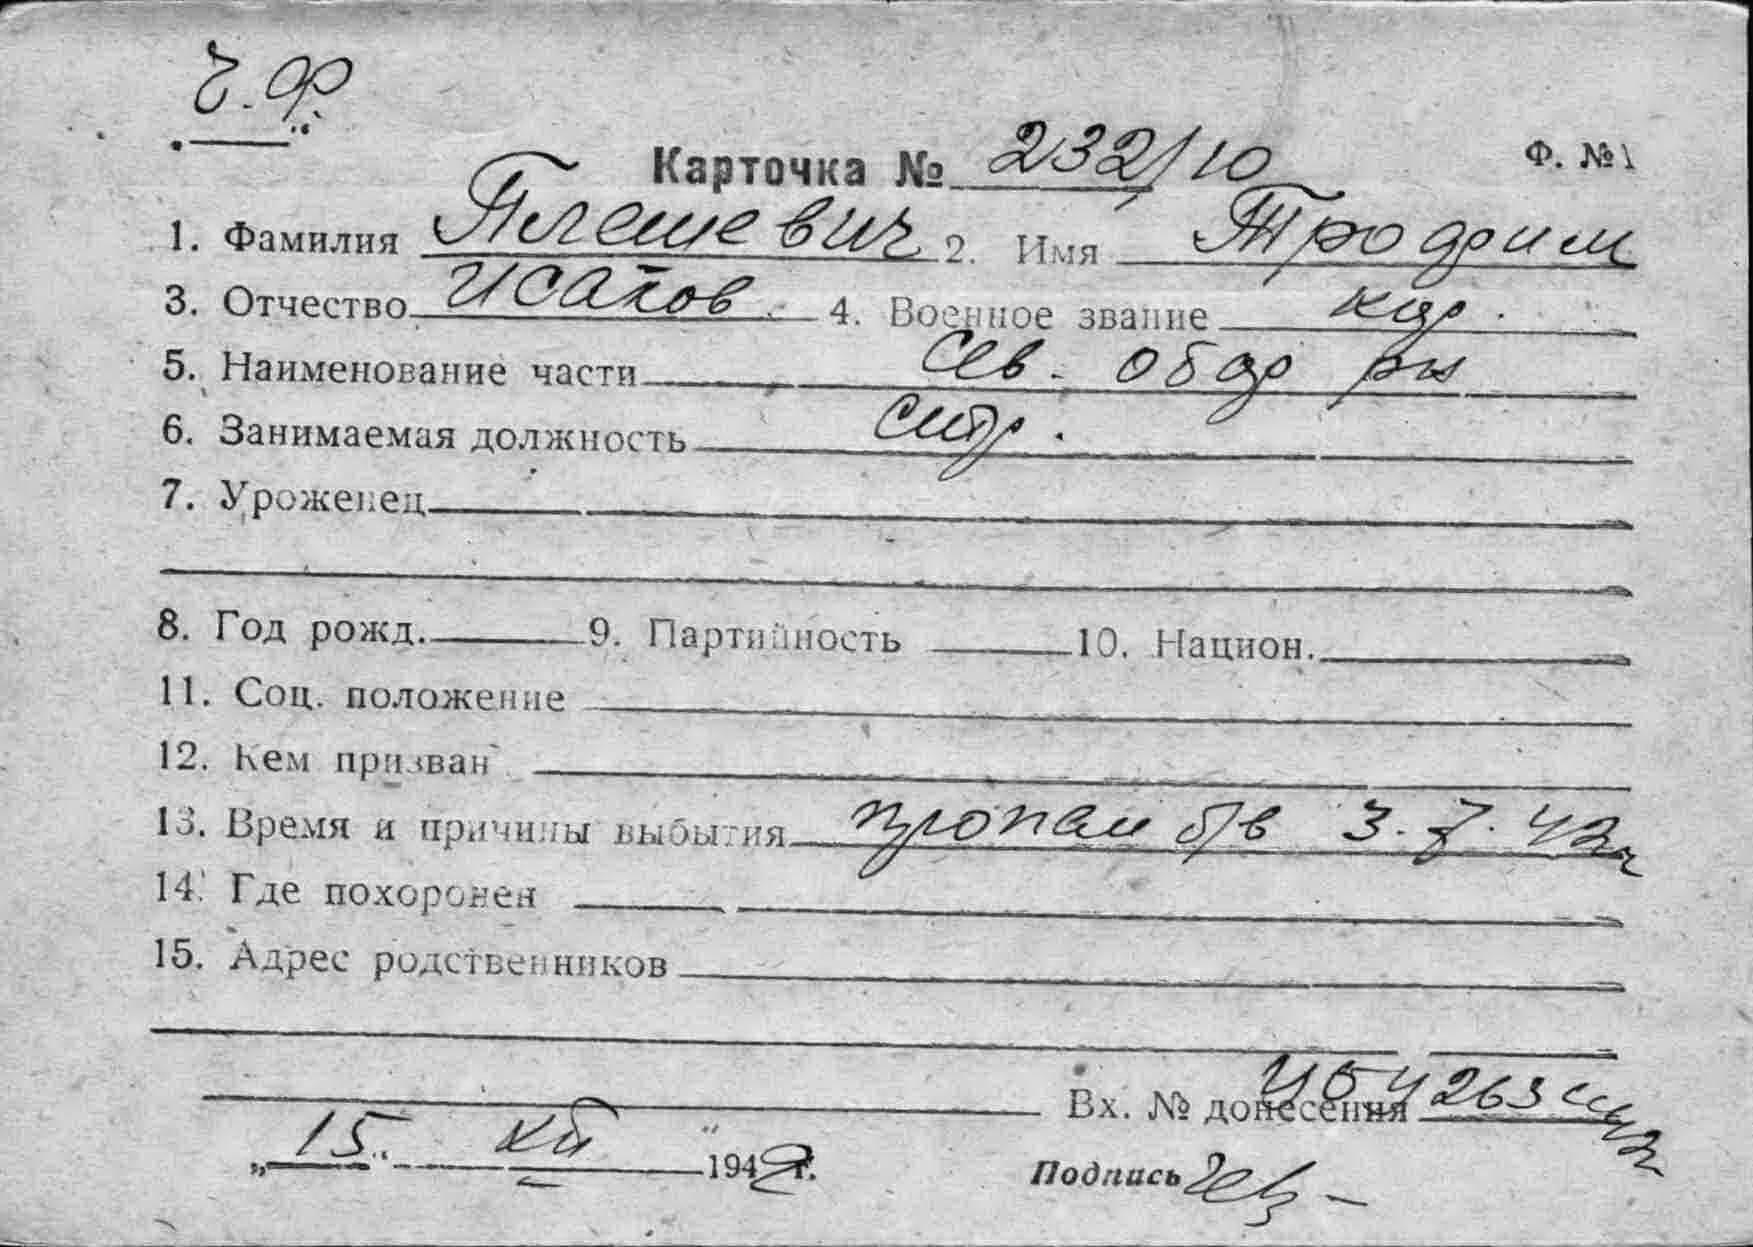 Ч.Ф.
Карточка № 232/10 Ф. №1
1. Фамилия Плешевич 2. Имя Трофим
3. Отчество Исаков. 4. Военное звание кдр.
5. Наименование части Сев. обор рн
6. Занимаемая должность
7. Уроженец
8. Год рожд. 9. Партийность 10. Национ.
11. Соц. положение
12. Кем призван
13. Время и причины выбытия пропал б/в 3.7.42г
14. Где похоронен
15. Адрес родственников
Вх. № донесения 263
„15“ 1942г. Подпись